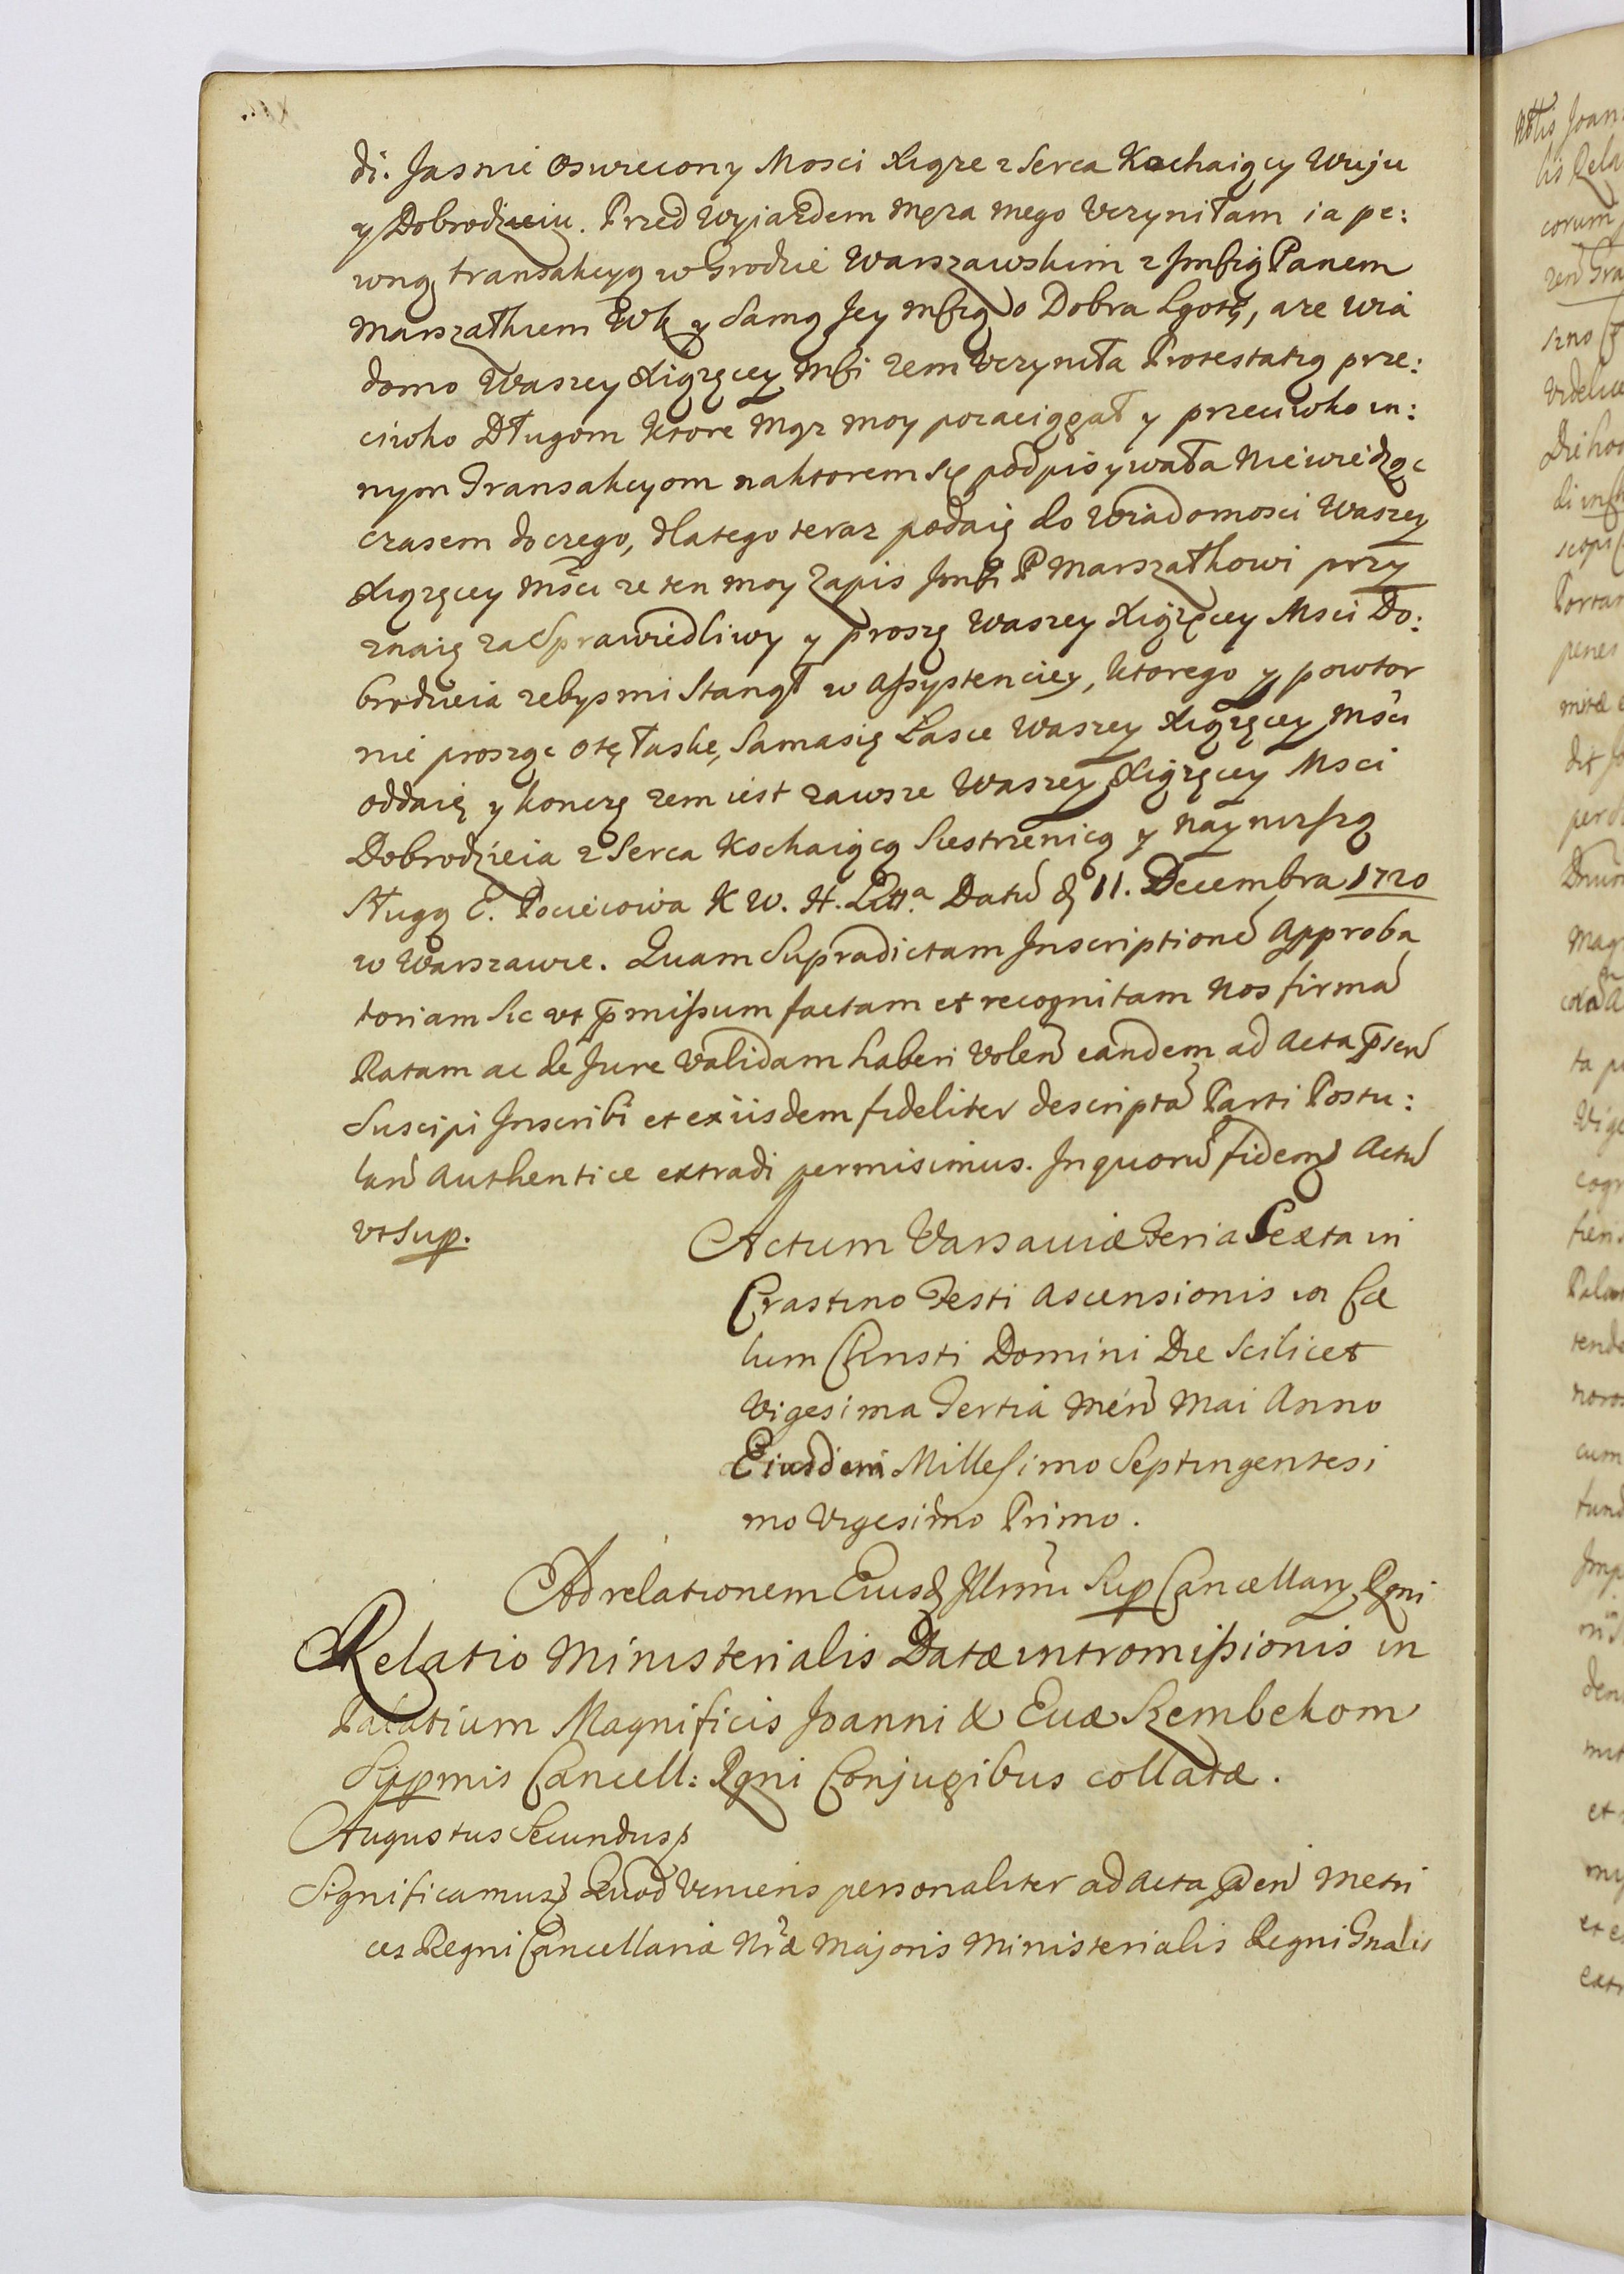 di. Jasnie Oswiecony Mosci Xiąze z Serca Kochaiący Wuju
y Dobrodzieiu. Przed wyjazdem Męza mego Vczyniłam ia pe:
wną transakcyą w Grodzie Warszawskim z Jmścią Panem
Marszałkiem Wk y Samą Jey Mścią o Dobra Lgotę, aże wia
domo Waszey Xiązęcey Mści zem Vczyniła Protestatią prze:
ciwko Długom ktore Mąz moy pozaciągał y przeciwko in:
nym Transakcyom naktorem się podpisywała Niewiedząc
czasem doczego, dlatego teraz podaię do wiadomosci Waszey
Xiązęcey Mści ze ten moy Zapis Jmści P Marszałkowi przy
znaię za Sprawiedliwy y proszę Waszey Xiązęcey Msci Do:
brodzieia zebys mi Stanął w Assystenciey, ktorego y powtor
nie prosząc otę łaskę, Samasię Łasce Waszey Xiązęcey Mści
oddaię y konczę zem iest zawsze Waszey Xiązęcey Msci
Dobrodzieia z Serca Kochaiącą Siestrzenicą y Nayniższą
Sługą E. Pocieiowa K W. H. Litt.a Datũ d 11. Decembra 1720
w Warszawie. Quam Supradictam Inscriptionẽ Approba
toriam Sic vt p̃missum factam et recognitam Nos firmã
Ratam ac de Jure Validam haberi Volen̄ eandem ad Acta p̃sen̄
Suscipi Inscribi et exiisdem fideliter descriptã Parti Postu:
lan̄ Authentice extradi permisimus. In quorũ fidem Actũ
vt Sup.
Actum Varsaviæ Feria Sexta in
Crastino Festi Ascensionis in Cæ
lum Christi Domini Die Scilicet
Vigesima Tertia Men̄ Mai Anno
Eiusdem Millesimo Septingentesi
mo Vigesimo Primo.
Ad relationem Eiusd Illrmi Sup Cancellarij Rgni
Relatio Ministerialis Datæ intromissionis in
Palatium Magnificis Joanni & Evæ Szembekom
Suppmis Cancell: Rgni Conjugibus collatæ.
Augustus Secundus
Significamus Quod Veniens personaliter ad Acta p̃sen̄ Metri
ces Regni Cancellariæ Nr̃æ Majoris Ministerialis Regni Gnalis